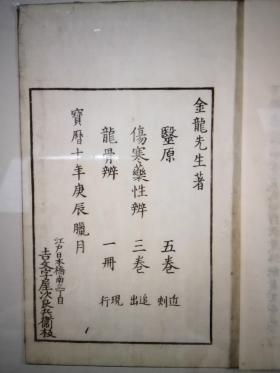 金龍先生著
醫原 五卷 近刻
傷寒藥性辨 三卷 追出
龍骨辨 一冊 現行
寶曆十年庚辰臘月
江戸日本橋南三丁目
吉文字屋次郎兵衛板